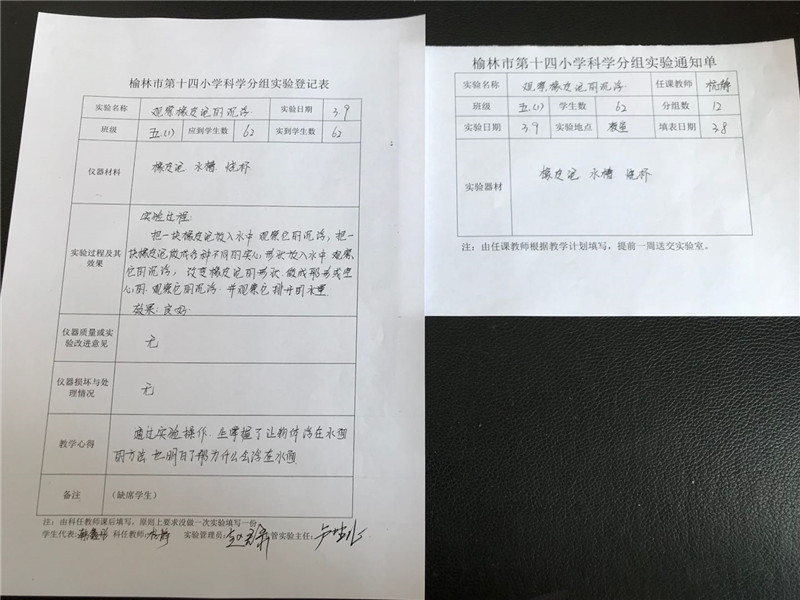 榆林市第十四小学科学分组实验登记表
实验名称 观察橡皮泥的沉浮 实验日期 3.9
班级 五.(1) 应到学生数 62 实到学生数 62
仪器材料 橡皮泥 水槽 烧杯
实验过程及其效果
实验过程:
把一块橡皮泥放入水中观察它的沉浮,把一
块橡皮泥做成各种不同的实心形状放入水中观察
它的沉浮,改变橡皮泥的形状.做成那形成空
心的.观察它的沉浮.并观察它排开的水量
效果:良好
仪器质量或实验改进意见 无
仪器损坏与处理情况 无
教学心得
通过实验操作.生掌握了让物体浮在水面
的方法 也明白了那为什么会浮在水面
备注 (缺席学生)
注:由科任教师课后填写,原则上要求没做一次实验填写一份
学生代表: 科任教师: 杭静 实验管理员: 管实验主任:
榆林市第十四小学科学分组实验通知单
实验名称 观察橡皮泥的沉浮 任课教师 杭静
班级 五.(1) 学生数 62 分组数 12
实验日期 3.9 实验地点 教室 填表日期 3.8
实验器材 橡皮泥 水槽 烧杯
注:由任课教师根据教学计划填写,提前一周送交实验室。